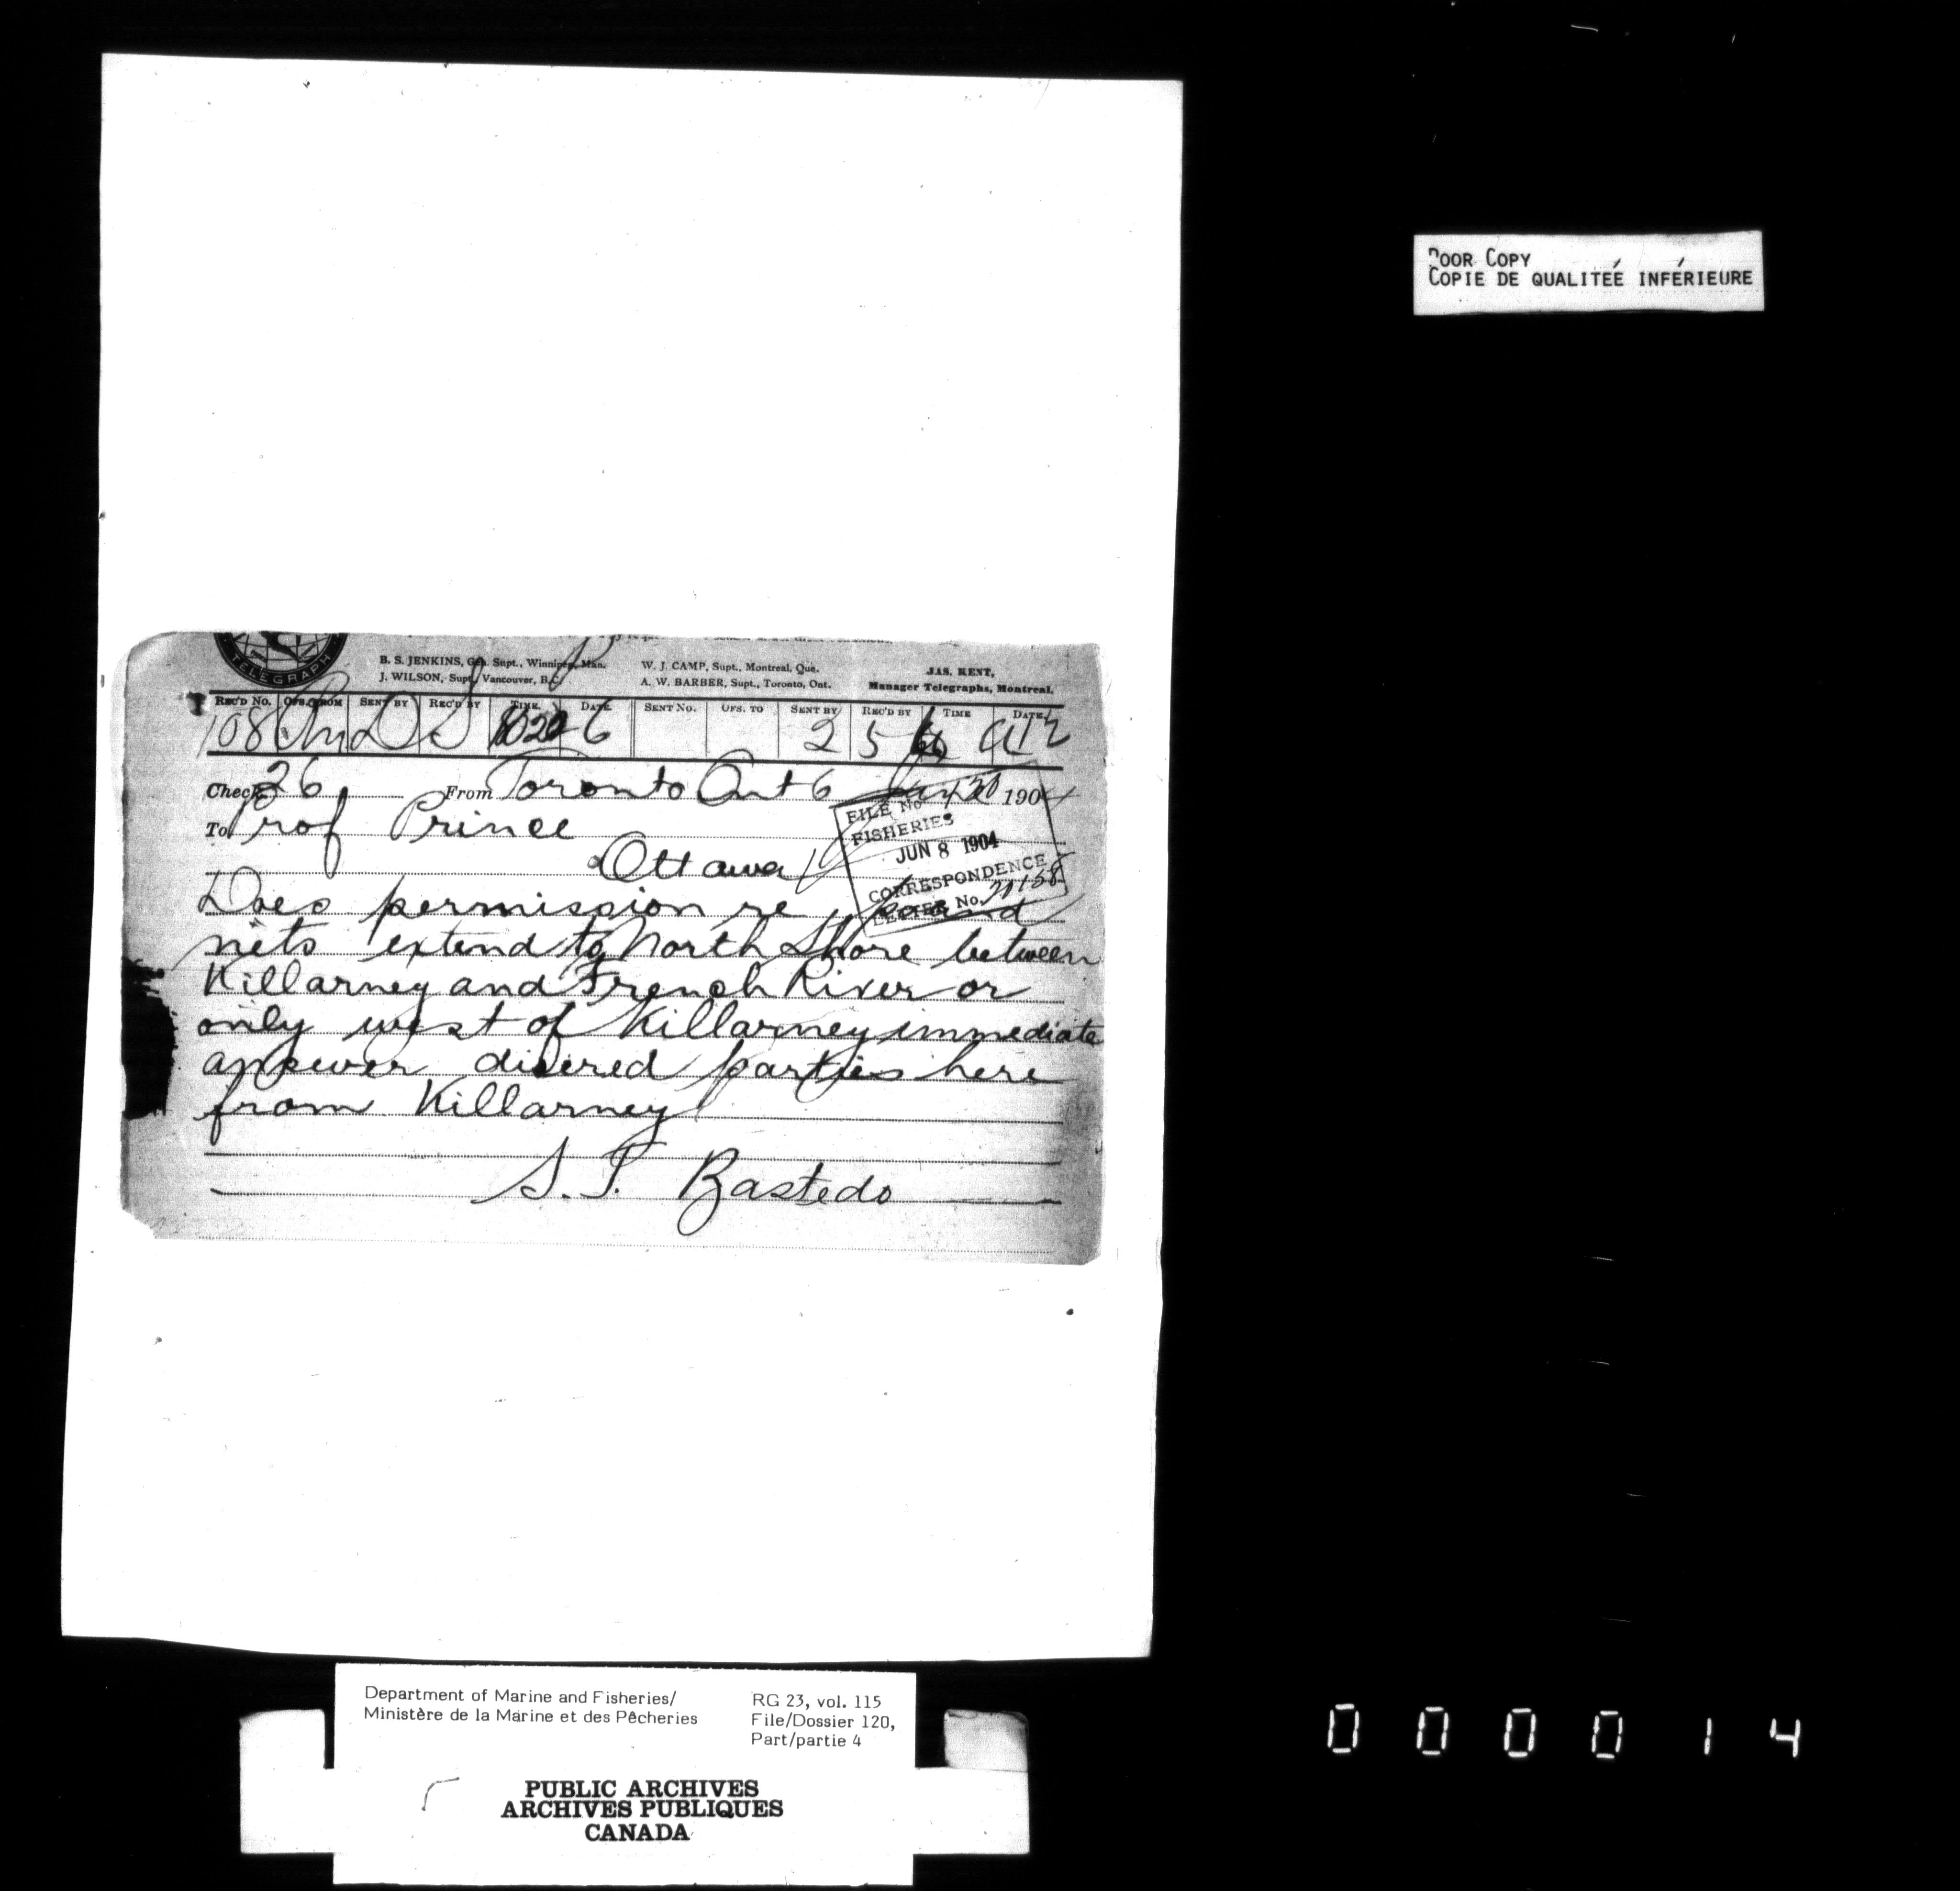 POOR COPY
COPIE DE QUALITEÉ INFÉRIEURE
TELEGRAPH
B. S. JENKINS, Gen. Supt., Winnipeg, Man.
W. J. CAMP, Supt., Montreal, Que.
JAS. KENT,
J. WILSON, Supt. Vancouver, B.C.
A. W. BARBER, Supt., Toronto, Ont.
Manager Telegraphs, Montreal.
REC'D No. OFS. FROM SENT BY REC'D BY TIME. DATE. SENT No. OFS. TO SENT BY REC'D BY TIME DATE.
108 6 2 5
Check 26 From Toronto Ont 6 1904
To Prof Prince
Ottawa
FILE No
FISHERIES
JUN 8 1904
CORRESPONDENCE
LETTER No.
Does permission re pound
nets extend to North Shore between
Killarney and French River or
only west of Killarney immediate
answer disired parties here
from Killarney
S. T. Bastedo
Department of Marine and Fisheries/
Ministère de la Marine et des Pêcheries
RG 23, vol. 115
File/Dossier 120,
Part/partie 4
PUBLIC ARCHIVES
ARCHIVES PUBLIQUES
CANADA
000014